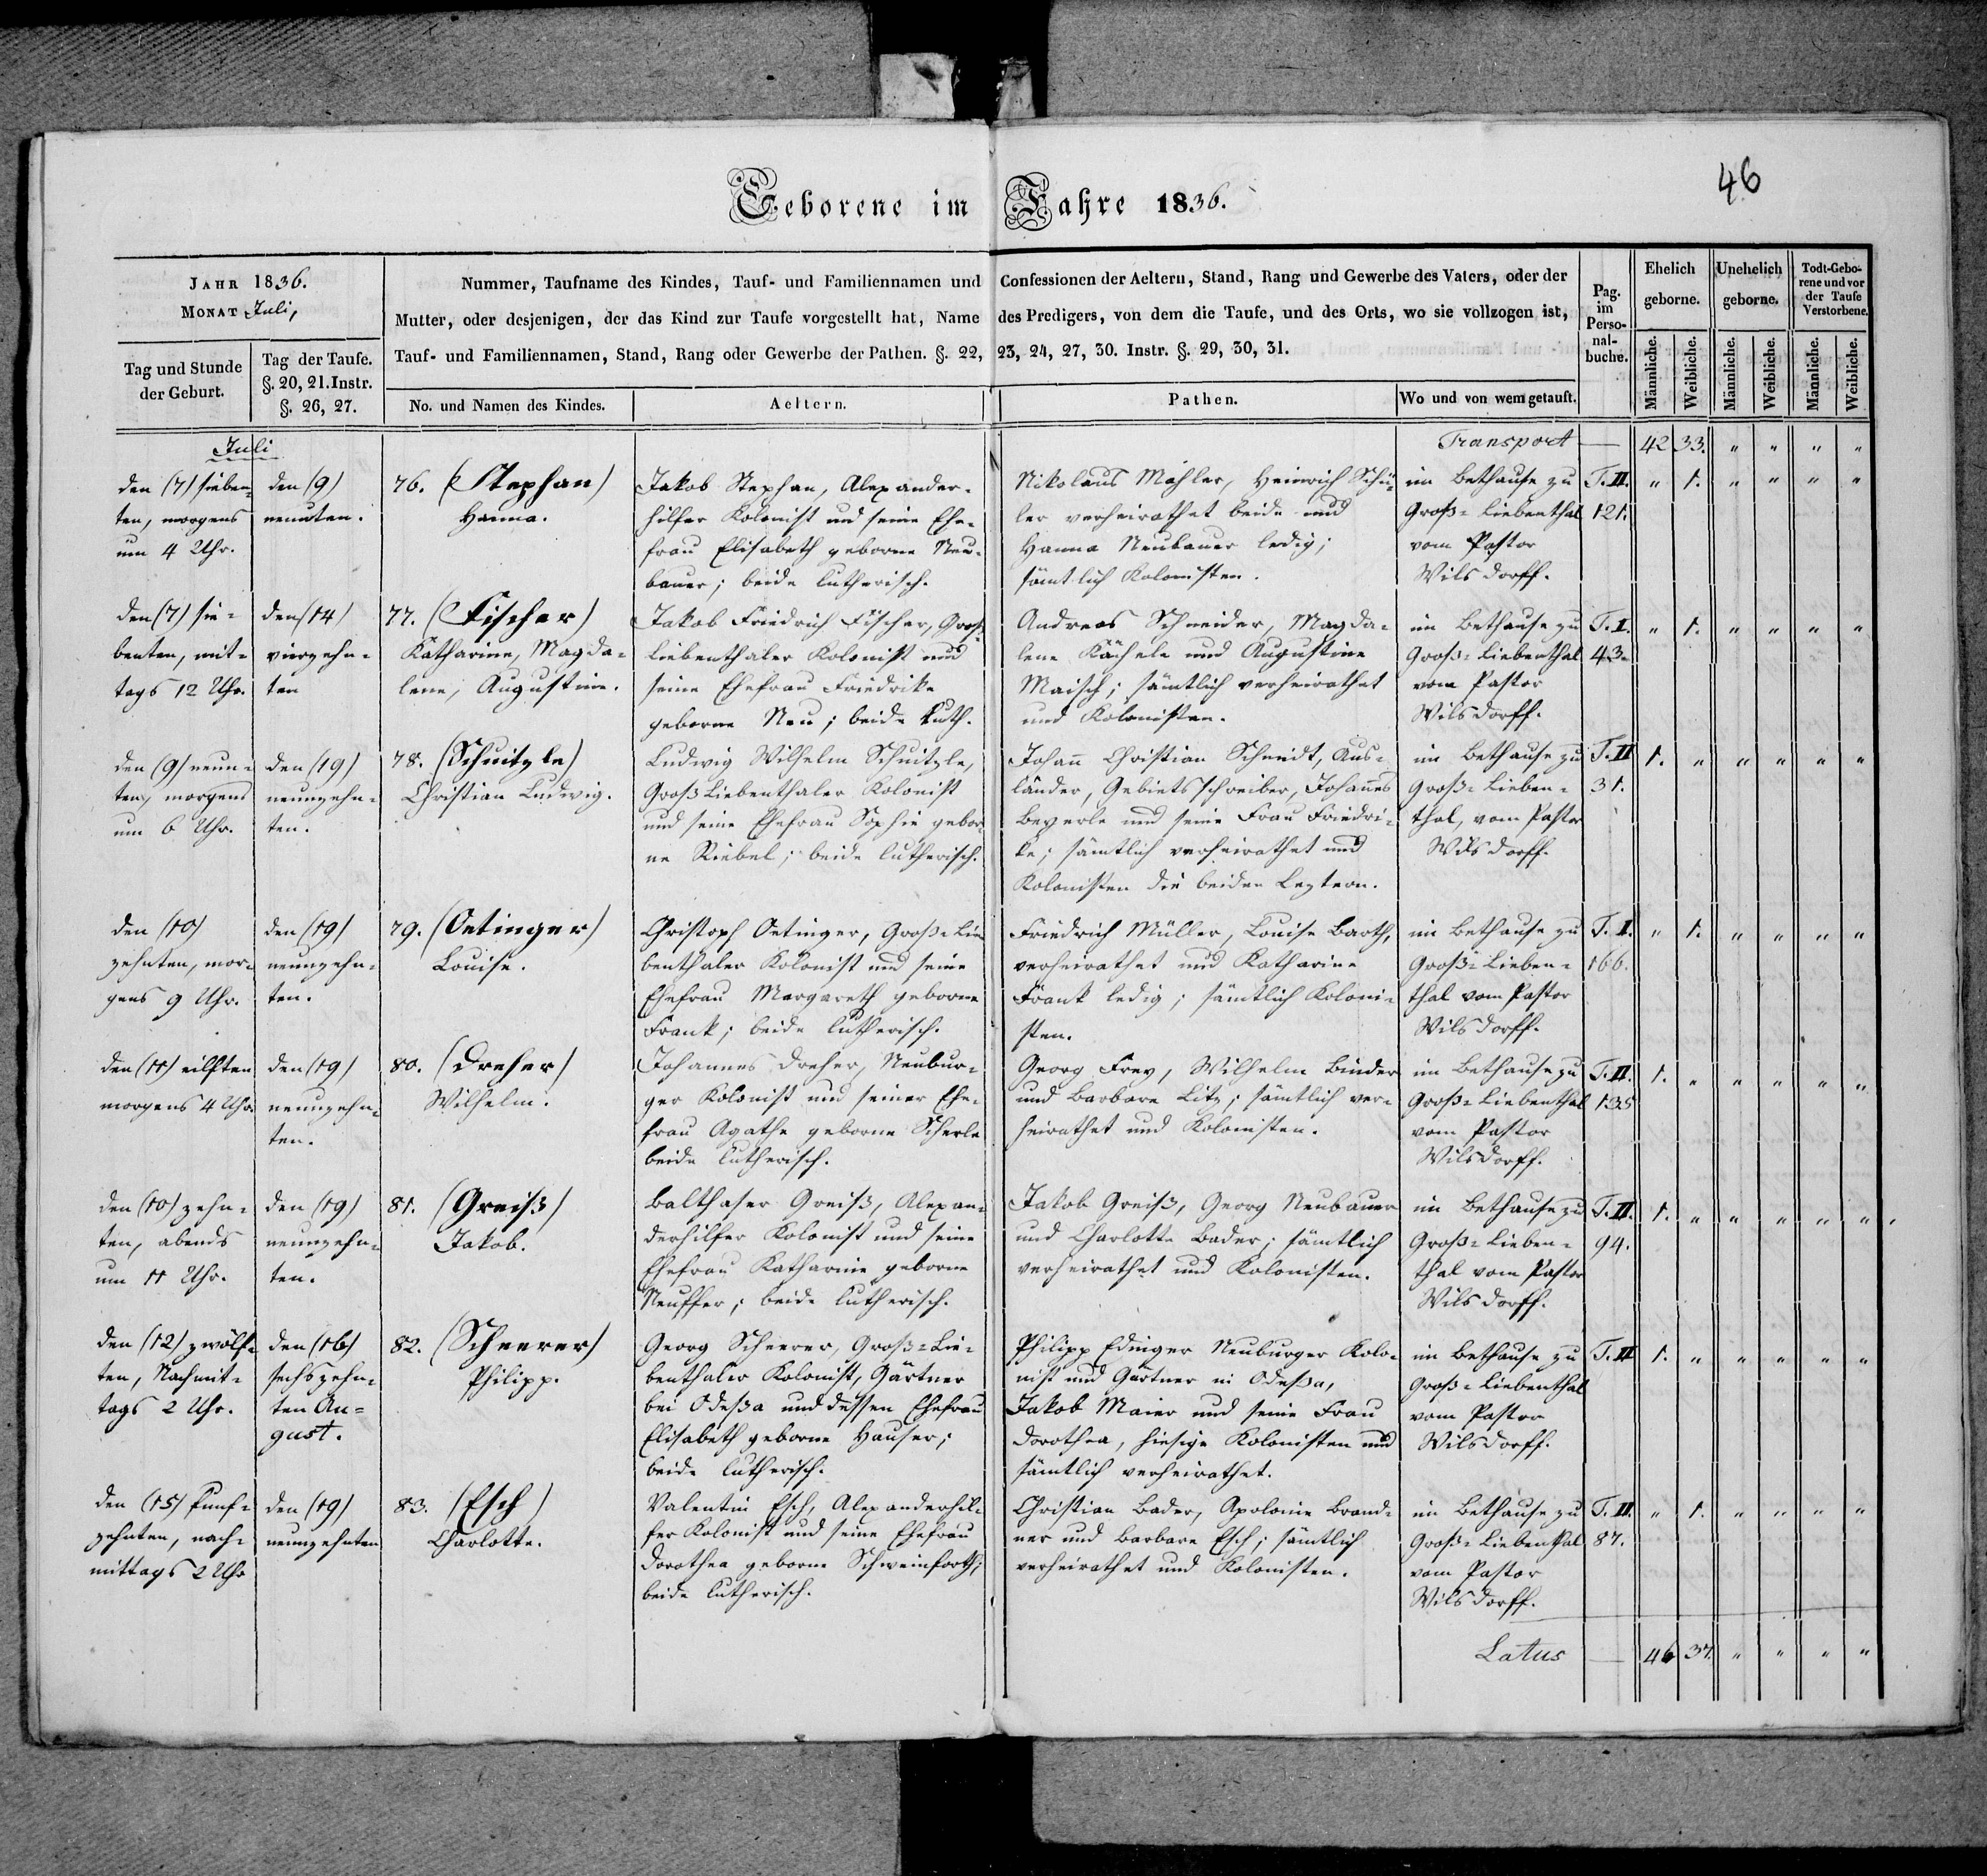 46
Geborene im Jahre 1836.
JAHR 1836.
MONAT Juli,
Tag und Stunde
der Geburt.
Tag der Taufe.
§. 20, 21. Instr.
§. 26, 27.
Nummer, Taufname des Kindes, Tauf- und Familiennamen und Confessionen der Aeltern, Stand, Rang und Gewerbe des Vaters, oder der
Mutter, oder desjenigen, der das Kind zur Taufe vorgestellt hat, Name des Predigers, von dem die Taufe, und des Orts, wo sie vollzogen ist,
Tauf- und Familiennamen, Stand, Rang oder Gewerbe der Pathen. §. 22, 23, 24, 27, 30. Instr. §. 29, 30, 31.
No. und Namen des Kindes.
Aeltern.
Pathen.
Wo und von wem getauft.
Pag.
im
Perso-
nal-
buche.
Ehelich
geborne.
Unehelich
geborne.
Todt-Gebo-
rene und vor
der Taufe
Verstorbene.
Männliche.
Weibliche.
Männliche.
Weibliche.
Männliche.
Weibliche.
Transport — 42 33. " " " "
Juli
den (7) sieben-
ten, morgens
um 4 Uhr.
den (9)
neunten.
76. (Stephan)
Hanna.
Jakob Stephan, Alexander-
hilfer Kolonist und seine Ehe-
frau Elisabeth geborne Neu-
bauer; beide lutherisch.
Nikolaus Mahler, Heinrich Schü-
ler verheirathet beide und
Hanna Neubauer ledig;
sämtlich Kolonisten.
im Bethause zu
Groß-Liebenthal
vom Pastor
Wilsdorff.
T. II.
121.
" 1. " " " "
den (7) sie-
benten, mit-
tags 12 Uhr.
den (14)
vierzehn-
ten
77. (Fischer)
Katharine, Magda-
lene, Augustine.
Jakob Friedrich Fischer, Groß-
liebenthaler Kolonist und
seine Ehefrau Friedrike
geborne Neu; beide luth.
Andreas Schneider, Magda-
lene Kächele und Augustine
Maisch; sämtlich verheirathet
und Kolonisten.
im Bethause zu
Groß-Liebenthal
vom Pastor
Wilsdorff.
T. I.
43.
" 1. " " " "
den (9) neun-
ten, morgens
um 6 Uhr.
den (19)
neunzehn-
ten.
78. (Schnitzle)
Christian Ludwig.
Ludwig Wilhelm Schnitzle,
Groß Liebenthaler Kolonist
und seine Ehefrau Sophie gebor-
ne Riebel; beide lutherisch.
Johann Christian Schmidt, Aus-
länder, Gebietsschreiber, Johannes
Beyerle und seine Frau Friedri-
ke; sämtlich verheirathet und
Kolonisten die beiden Leztern.
im Bethause zu
Groß-Lieben-
thal, vom Pastor
Wilsdorff.
T. II
31.
1. " " " " "
den (10)
zehnten, mor-
gens 9 Uhr.
den (19)
neunzehn-
ten.
79. (Oetinger)
Louise.
Christoph Oetinger, Groß-Lie-
benthaler Kolonist und seine
Ehefrau Margareth geborne
Frank; beide lutherisch.
Friedrich Müller, Louise Barth,
verheirathet und Katharine
Frank ledig; sämtlich Koloni-
sten.
im Bethause zu
Groß-Lieben-
thal vom Pastor
Wilsdorff.
T. I.
166.
" 1. " " " "
den (11) eilften
morgens 4 Uhr.
den (19)
neunzehn-
ten.
80. (Dreher)
Wilhelm.
Johannes Dreher, Neubur-
ger Kolonist und seiner Ehe-
frau Agathe geborne Scherle
beide lutherisch.
Georg Frey, Wilhelm Binder
und Barbara Litz; sämtlich ver-
heirathet und Kolonisten.
im Bethause zu
Groß-Liebenthal
vom Pastor
Wilsdorff.
T. II.
135
1. " " " " "
den (10) zehn-
ten, abends
um 11 Uhr.
den (19)
neunzehn-
ten.
81. (Greiß)
Jakob.
Balthaser Greiß, Alexan-
derhilfer Kolonist und seine
Ehefrau Katharine geborne
Neuffer; beide lutherisch.
Jakob Greiß, Georg Neubauer
und Charlotte Bader; sämtlich
verheirathet und Kolonisten.
im Bethause zu
Groß-Lieben-
thal vom Pastor
Wilsdorff.
T. II.
94.
1. " " " " "
den (12) zwölf-
ten, Nachmit-
tags 2 Uhr.
den (16)
sechszehn-
ten Au-
gust.
82. (Scheerer)
Philipp.
Georg Scheerer, Groß-Lie-
benthaler Kolonist, Gärtner
bei Odeßa und dessen Ehefrau
Elisabeth geborne Hauser;
beide lutherisch.
Philipp Edinger Neuburger Kolo-
nist und Gärtner in Odeßa,
Jakob Maier und seine Frau
Dorothea, hiesige Kolonisten und
sämtlich verheirathet.
im Bethause zu
Groß-Liebenthal
vom Pastor
Wilsdorff.
T. II
1. " " " " "
den (15) funf-
zehnten, nach-
mittags 2 Uhr
den (19)
neunzehnten
83. (Esch)
Charlotte.
Valentin Esch, Alexanderhil-
fer Kolonist und seine Ehefrau
Dorothea geborne Schweinforth;
beide lutherisch.
Christian Bader, Apolonie Brand-
ner und Barbara Esch; sämtlich
verheirathet und Kolonisten.
im Bethause zu
Groß-Liebenthal
vom Pastor
Wilsdorff.
T. II.
87.
" 1. " " " "
Latus — 46 37. " " " "